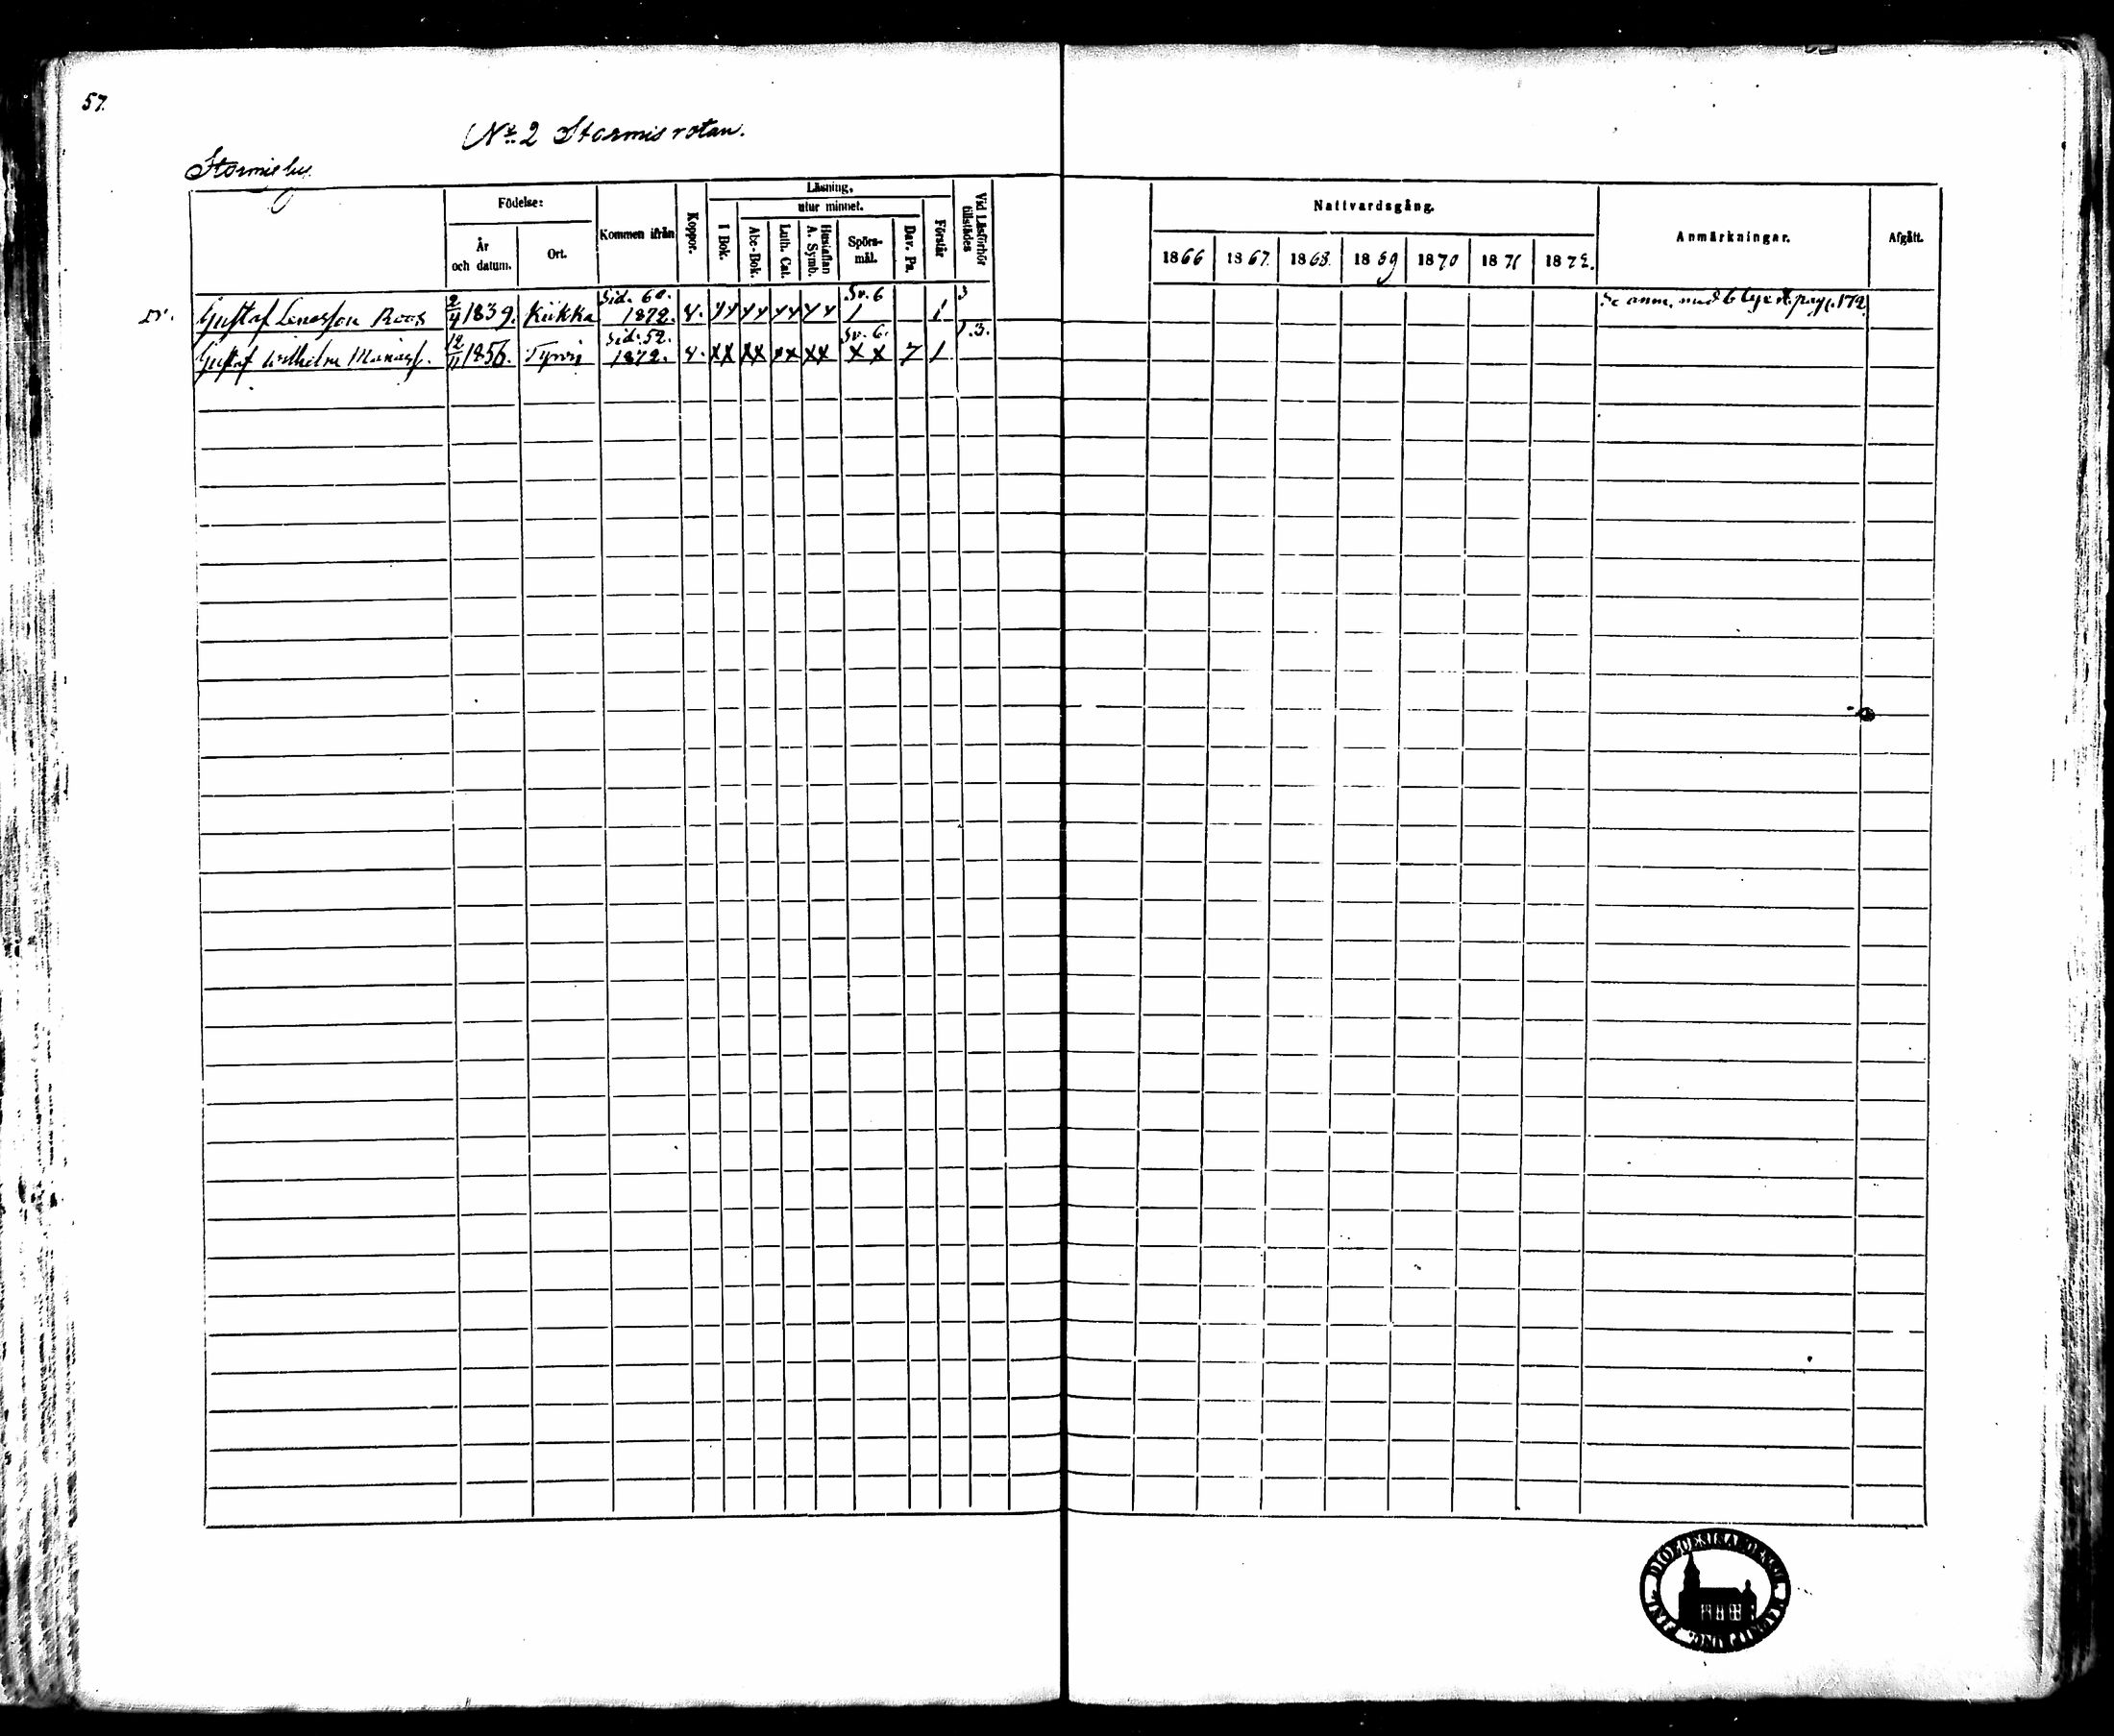 57.
No 2 Stormis rotan.
Stormis by.
Födelse: Kommen ifrån Koppor. Läsning. Vid Läsförhör tillstädes
År och datum. Ort. I Bok. utur minnet. Förstår
Abc-Bok. Luth. Cat. Hustaflan A. Symb. Spörs-mål. Dav. Ps.
Nattvardsgång. Anmärkningar. Afgått.
1866 1867. 1868. 1869 1870 1871 1872.
Sid. 60. Sv. 6 3
Gustaf 2/4 1839. Kiikka 1872. v. 1 1
Sid. 52. Sv. 6. 1.3.
Gustaf Wilhelm 12/11 1856. Tyrvis 1872. v. XX XX XX XX X X 7 1
Se anm. med pag. 172